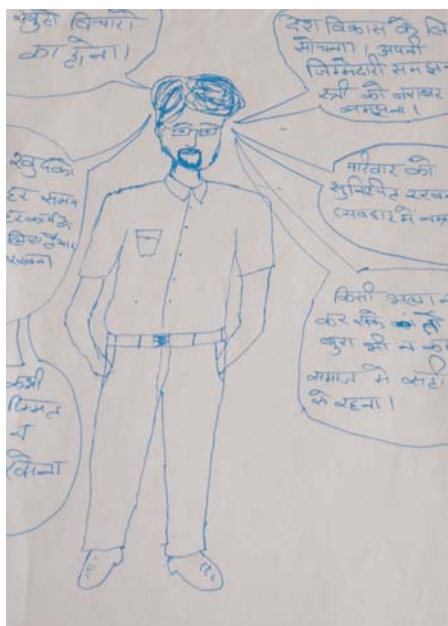 खुले विचारों
का होना।
देश विकास के लि
सोचना। अपनी
जिम्मेदारी समझना
स्त्री को बराबर
समझना।
खुदको
हर समय
हर कार्य के
लिए तैयार
रखना।
परिवार को
सुरक्षित रखना
व्यवहार में नम्र
किसी भला न
कर सके तो
बुरा भी न कर
समाज में सही
से रहना।
कभी
हिम्मत
न
खोना